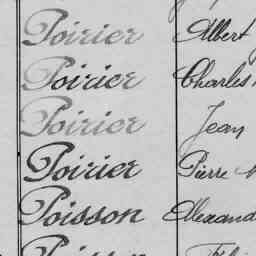 Poirier Albert
Poirier Charles
Poirier Jean
Poirier Pierre
Poisson Alexand